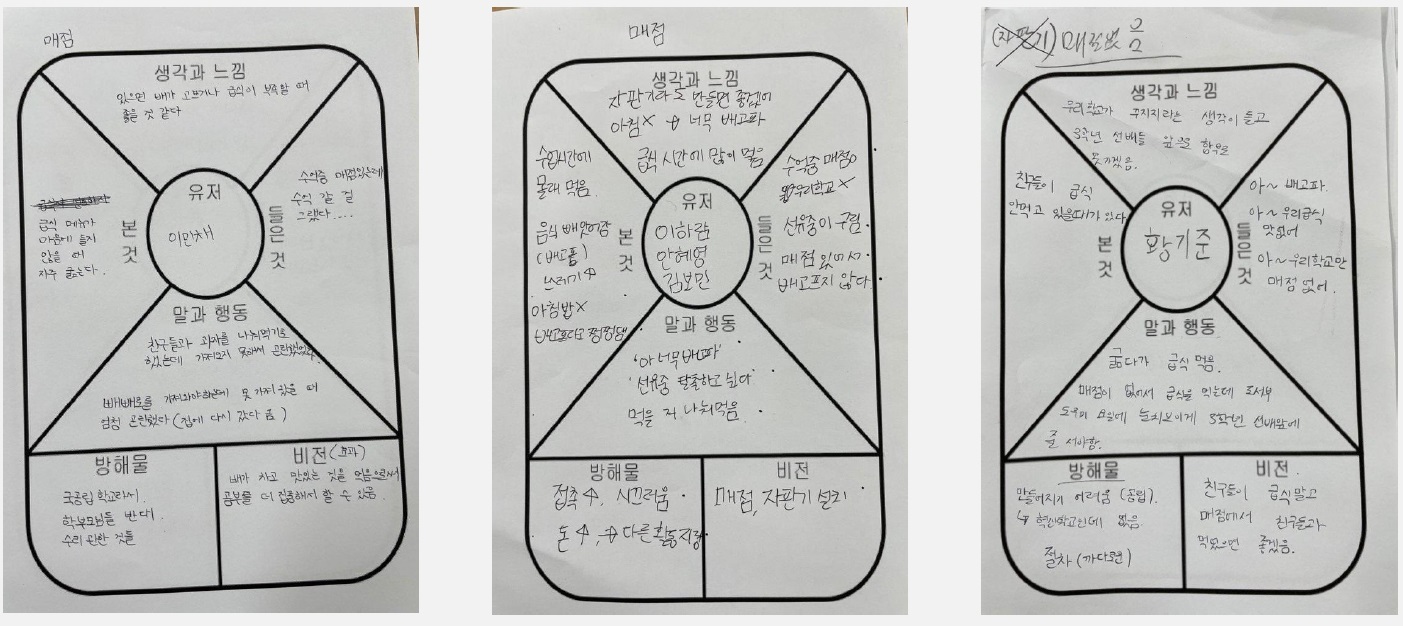 매점
생각과 느낌
있으면 배가 고프거나 급식이 부족할 때
좋을 것 같다
유저
이민채
본 것
급식 메뉴가
마음에 들지
않을 때
자주 굶는다.
들은 것
수업중 매점있는데
수익 갈 걸
그랬다....
말과 행동
친구들과 과자를 나눠먹기로
했는데 가져오지 못해서 곤란했었다.
빼빼로를 가져와야하는데 못 가져 왔을 때
엄청 곤란했다 (집에 다시 갔다 옴)
방해물
국공립 학교라서.
학부모님들 반대.
수리 원한 것들
비전 (효과)
배가 차고 맛있는 것을 먹음으로써
공부를 더 집중해서 할 수 있음.
매점
생각과 느낌
자판기라도 만들면 좋겠어
아침× → 너무 배고파
급식 시간에 많이 먹음
유저
이하람
안혜영
김보민
본 것
수업시간에
몰래 먹음
음식 빼앗어감
(배고픔)
쓰레기↑
아침밥×
배고프다고 찡찡댐
들은 것
수억중 매점o
우리학교×
선유중이 구림.
매점 있어서.
배고프지 않다.
말과 행동
'아 너무 배고파'
'선유중 탈출하고 싶다'
먹을 거 나눠먹음.
방해물
접촉↑, 시끄러움.
돈↑, → 다른 활동지장
비전
매점, 자판기 설치
(자판기) 매점없음
생각과 느낌
우리학교가 꾸지지라는 생각이 들고
3학년 선배들 앞으로 합류를
못가겠음.
유저
황기준
본 것
친구들이 급식
안먹고 있을때가 있다
들은 것
아~ 배고파.
아~ 우리급식
맛없어
아~ 우리학교만
매점 없어.
말과 행동
굶다가 급식 먹음.
매점이 없어서 급식을 먹는데
눈치보이게 3학년 선배앞에
줄 서야함.
방해물
만들어지기 어려움 (공립).
↳ 혁신학교인데 없음.
절차 (까다로움)
비전.
친구들이 급식말고
매점에서 친구들과
먹었으면 좋겠음.